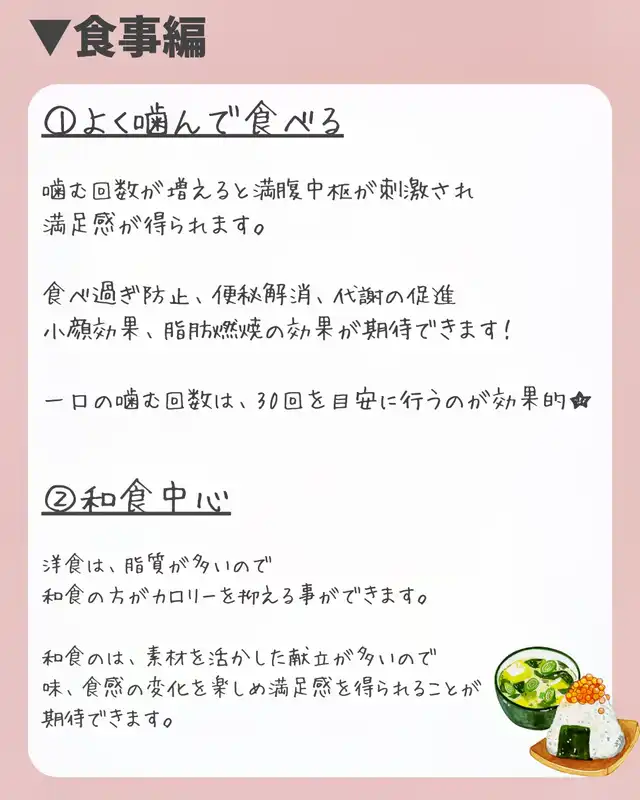 ▼食事編
①よく噛んで食べる
噛む回数が増えると満腹中枢が刺激され
満足感が得られます。
食べ過ぎ防止、便秘解消、代謝の促進
小顔効果、脂肪燃焼の効果が期待できます!
一口の噛む回数は、30回を目安に行うのが効果的★
②和食中心
洋食は、脂質が多いので
和食の方がカロリーを抑える事ができます。
和食のは、素材を活かした献立が多いので
味、食感の変化を楽しめ満足感を得られることが
期待できます。